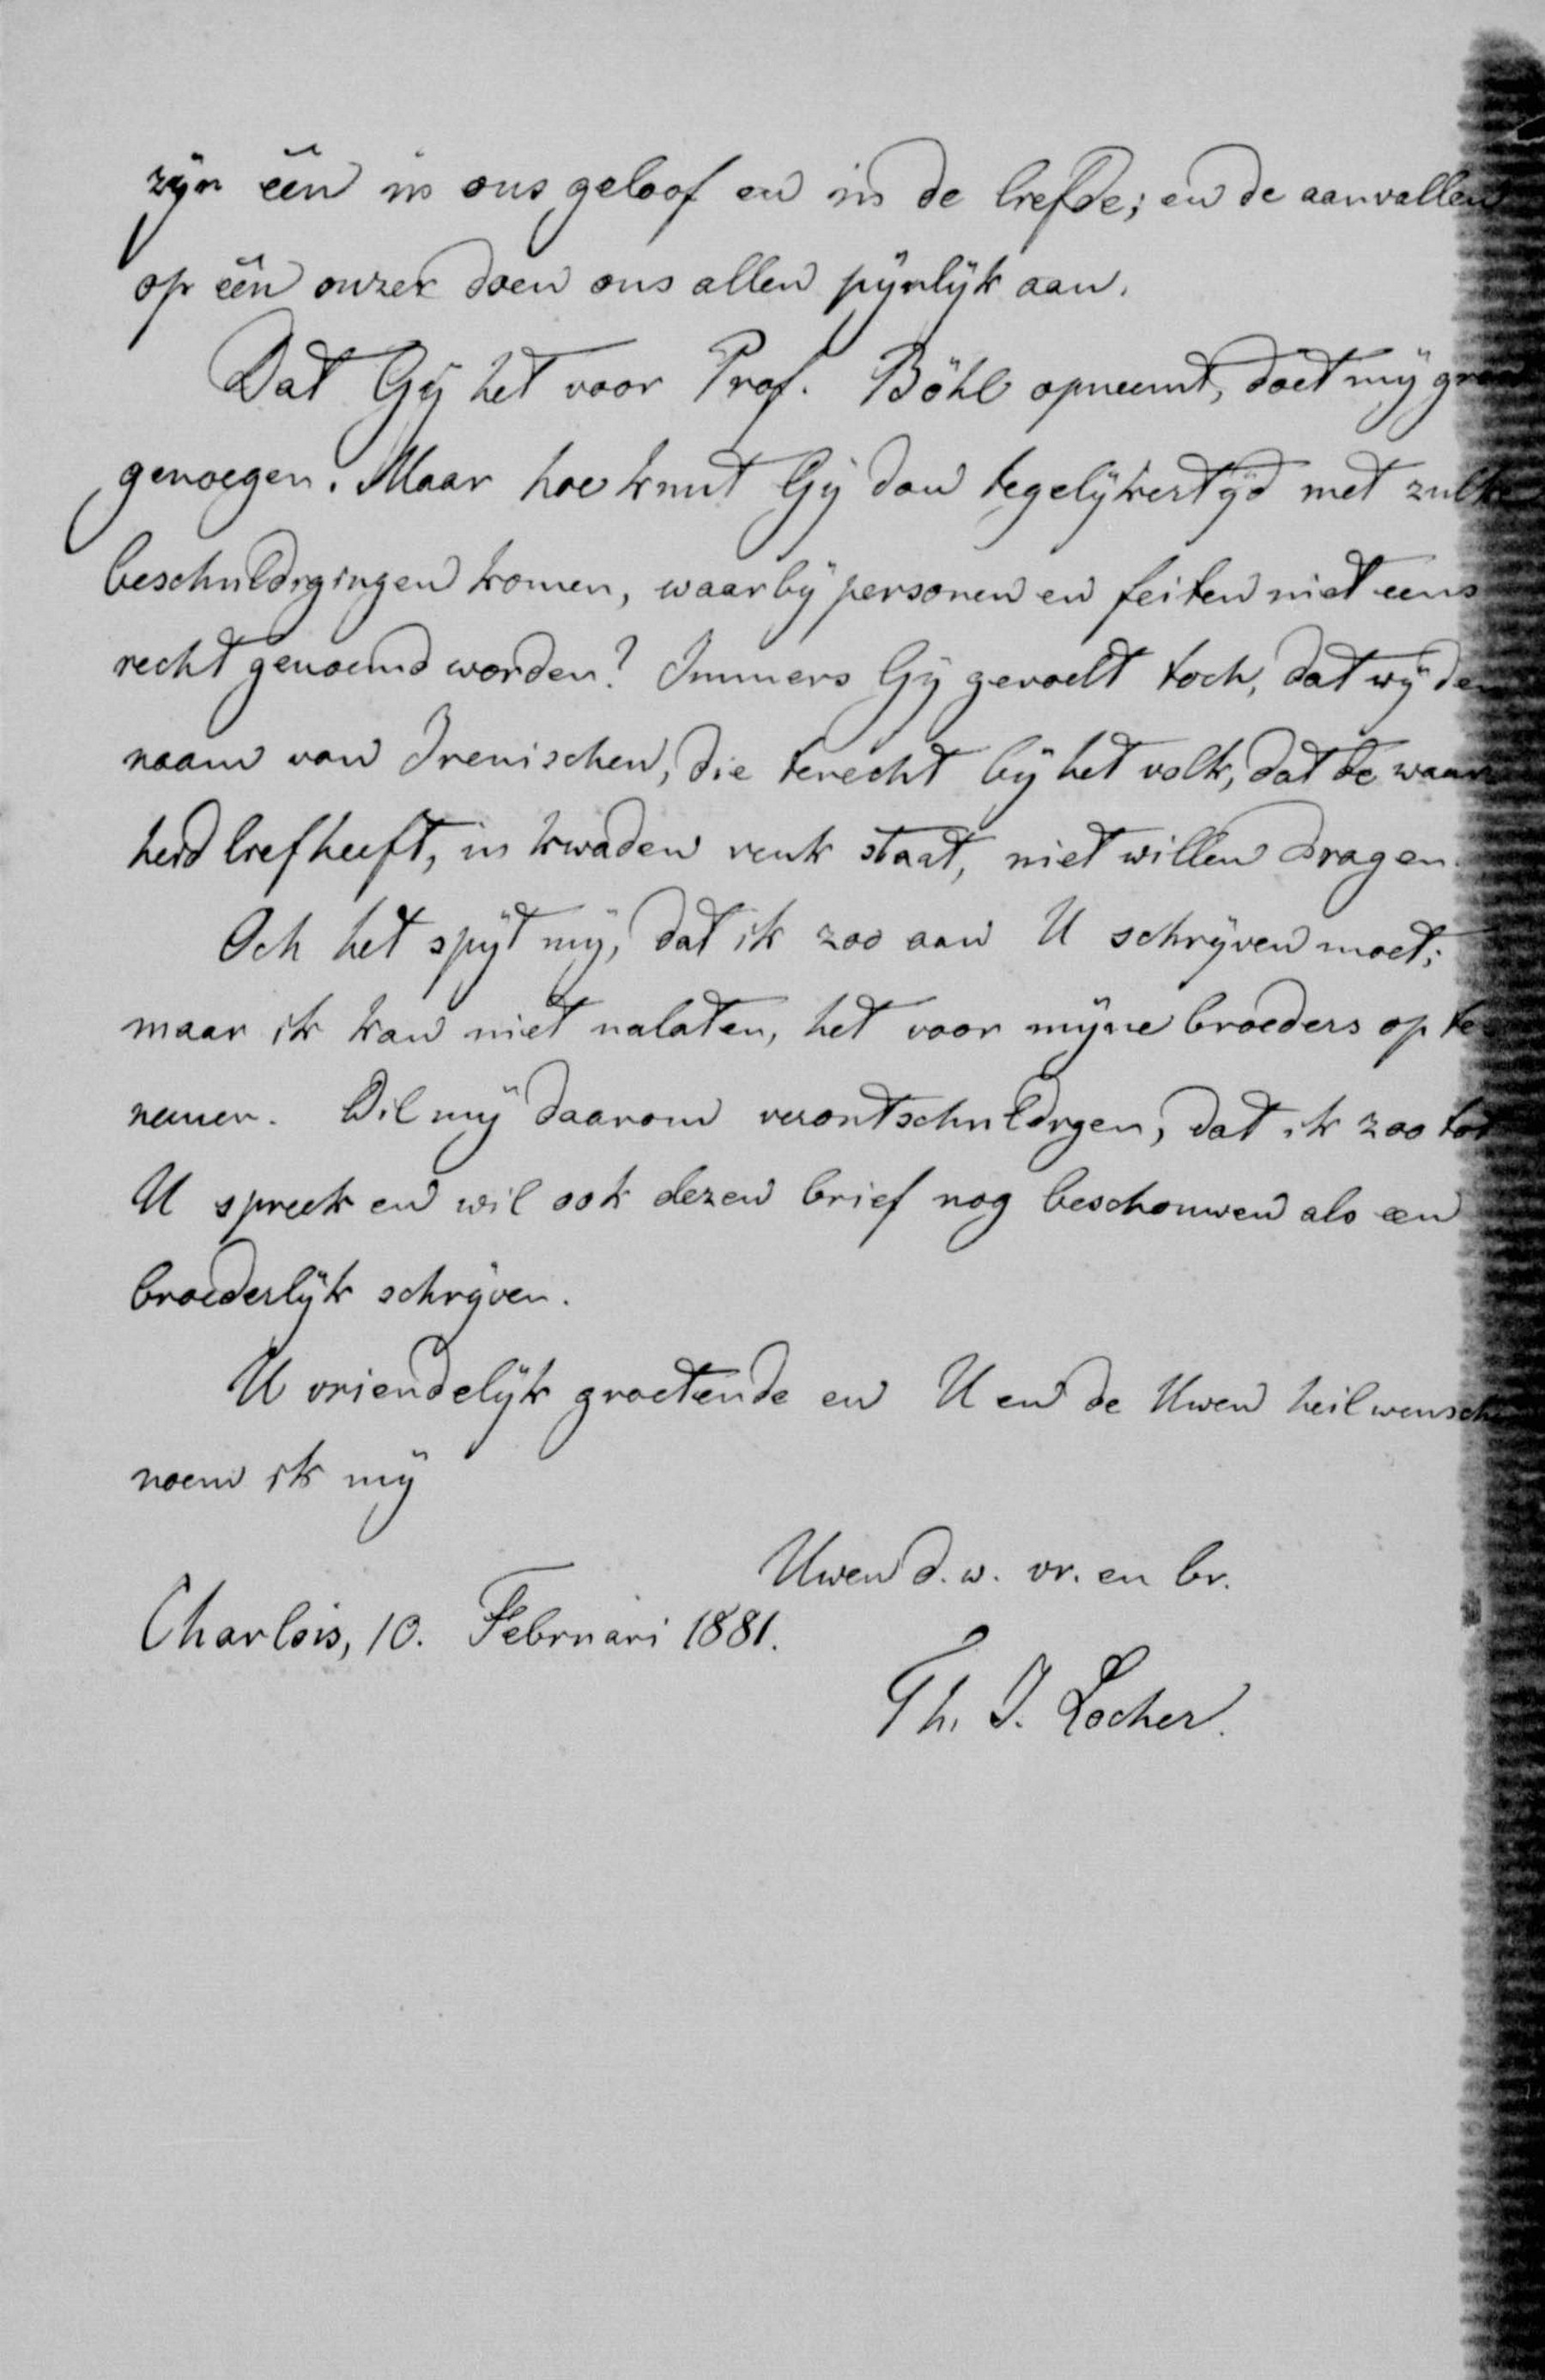 zijn één in ons geloof en in de liefde; en de aanvallen
op één onzer doen ons allen pijnlijk aan.
Dat Gij het voor Prof. Böhl opneemt, doet mij
genoegen. Maar hoe kunt Gij dan tegelijkertijd met zulke
beschuldigingen komen, waarbij personen en feiten niet eens
recht genoemd worden? Immers Gij gevoelt toch, dat wij den
naam van Irenischen, die terecht bij het volk, dat de waar
heid liefheeft, in kwaden reuk staat, niet willen dragen.
Och het spijt mij, dat ik zoo aan U schrijven moet;
maar ik kan niet nalaten, het voor mijne broeders op te
nemen. Wil mij daarom verontschuldigen, dat ik zoo tot
U spreek en wil ook dezen brief nog beschouwen als een
broederlijk schrijven.
U vriendelijk groetende en U en de Uwen heil wensch
noem ik mij
Uwen d. w. vr. en br.
Charlois, 10. Februari 1881.
Th. J. Locher.